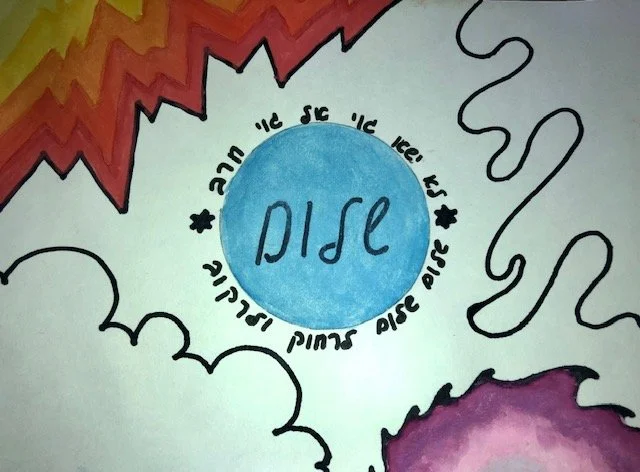 לא ישא גוי אל גוי חרב
שלום
שלום שלום לרחוק ולרקוב